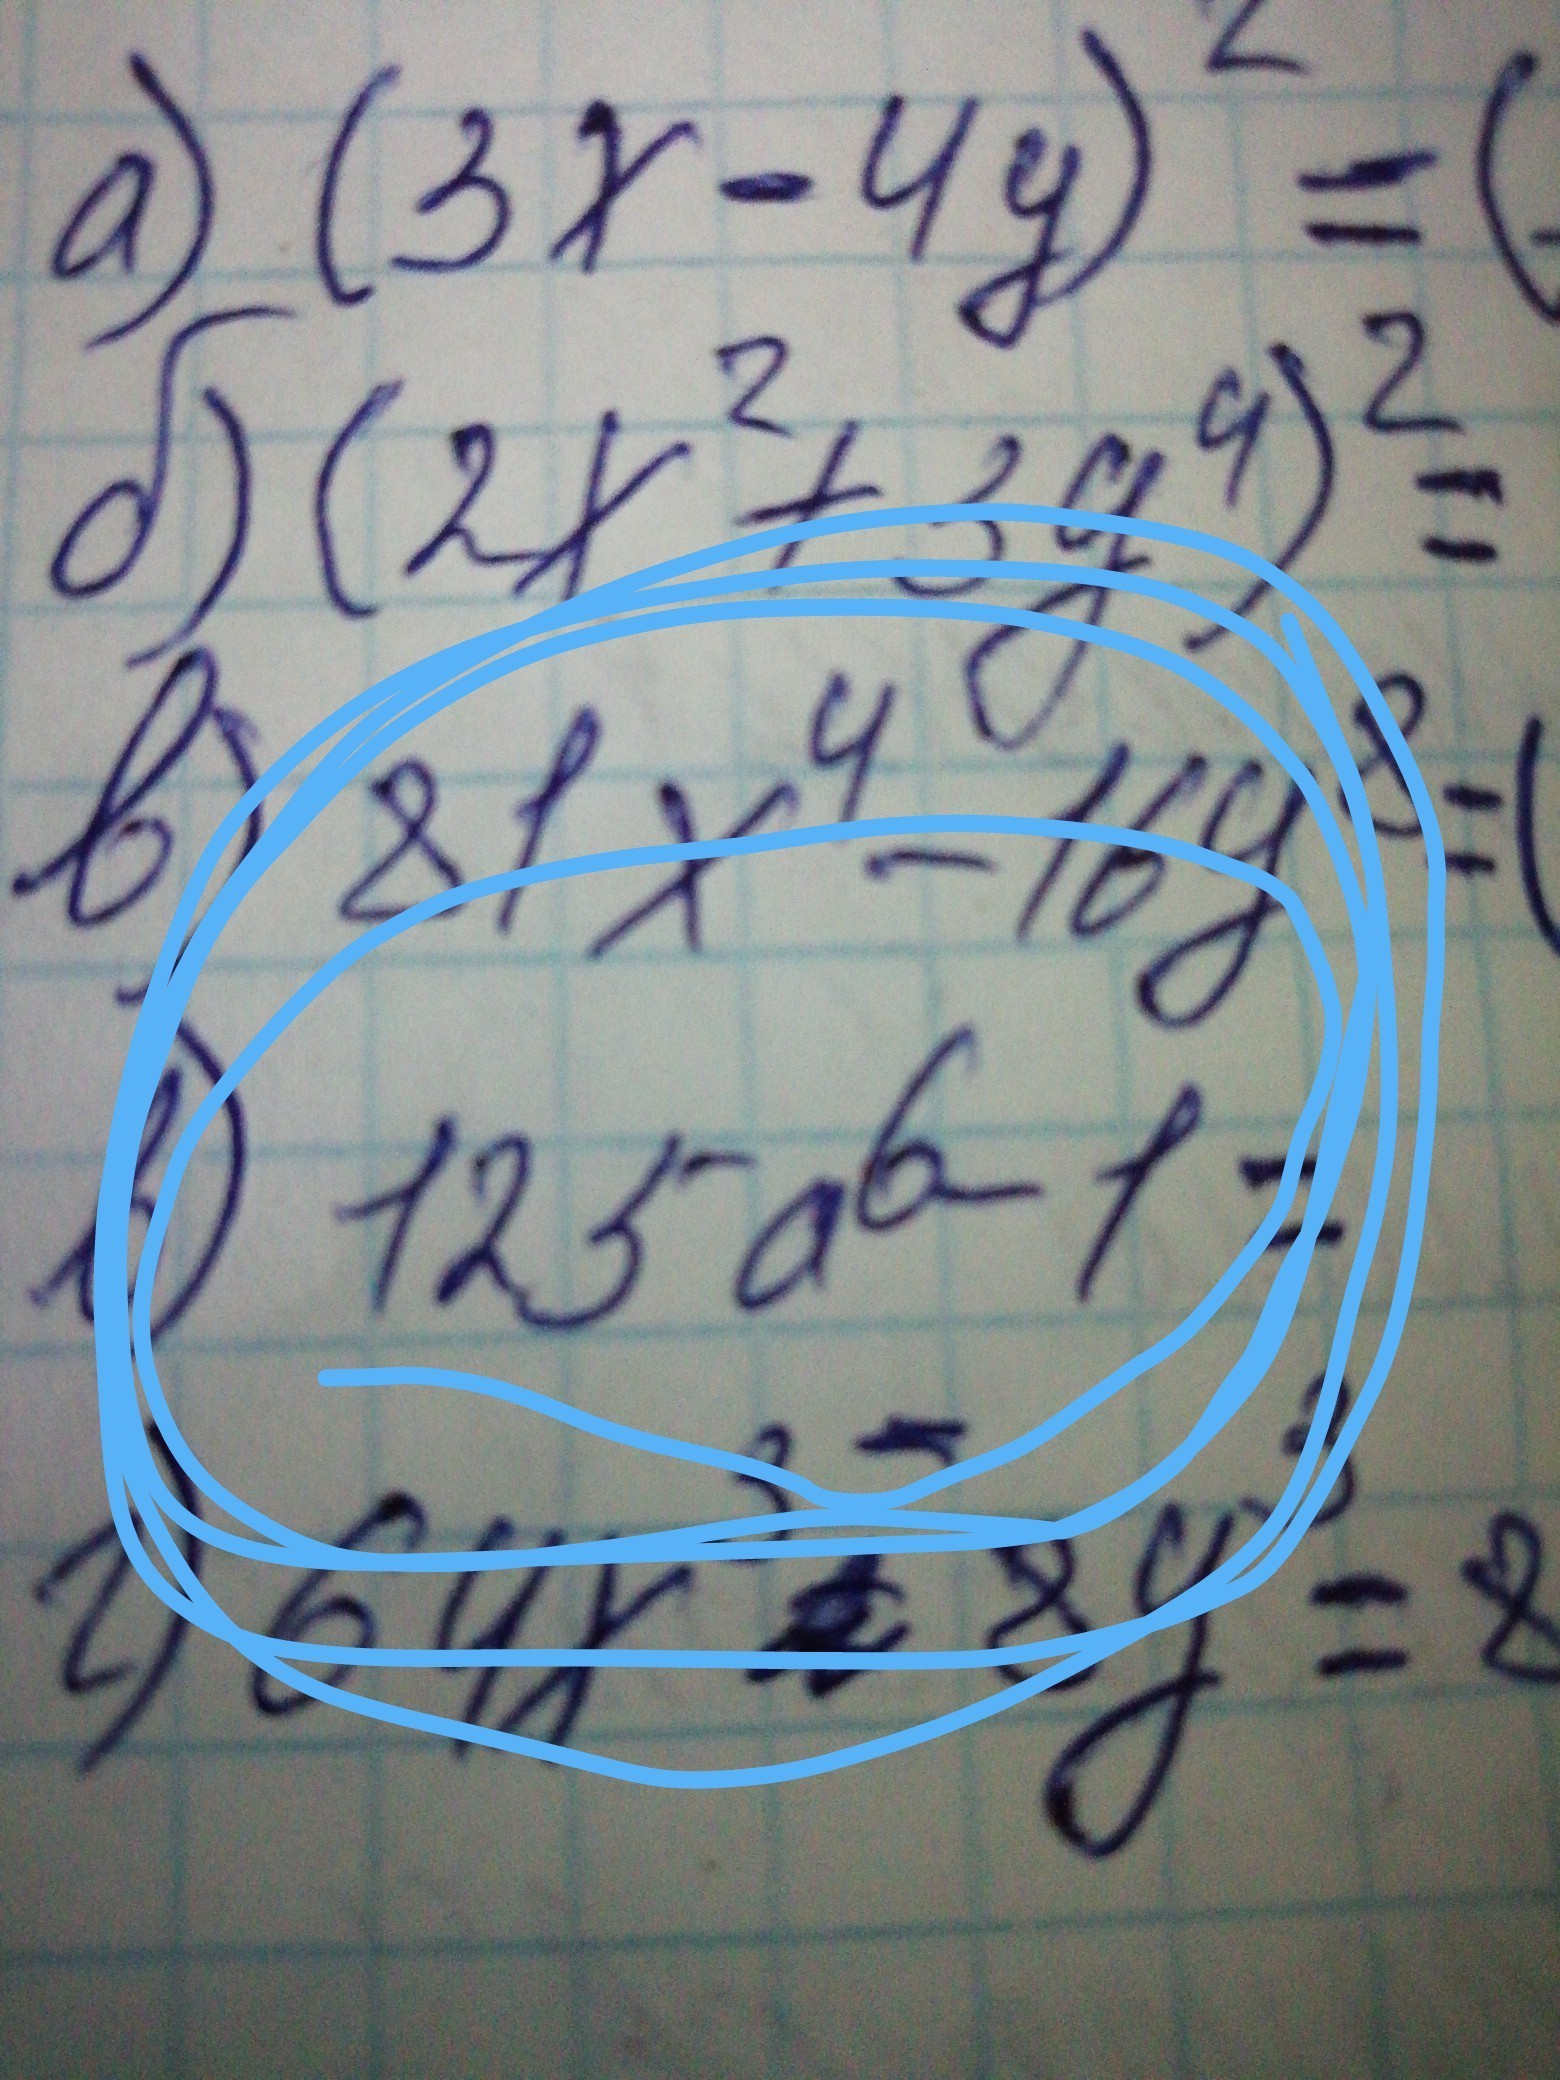 а) (3x - 4y)² = (
б) (2x² + 3y⁴)² =
в) 81x⁴ - 16y⁸ = (
в) 125a⁶ - 1 =
г) 64x³ - 8y³ = 8